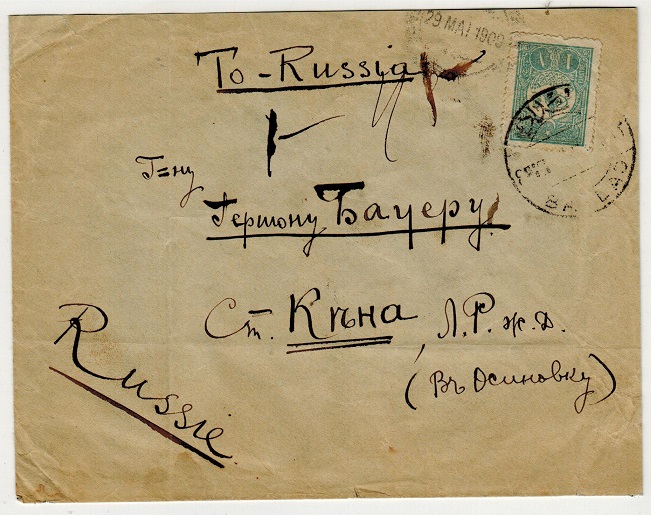 29 MAI 1909
To-Russia
Г=ну
Гершону Бауеру
Ст. Кѣна, Л.Р.ж.д.
(Въ Осиновку)
Russie